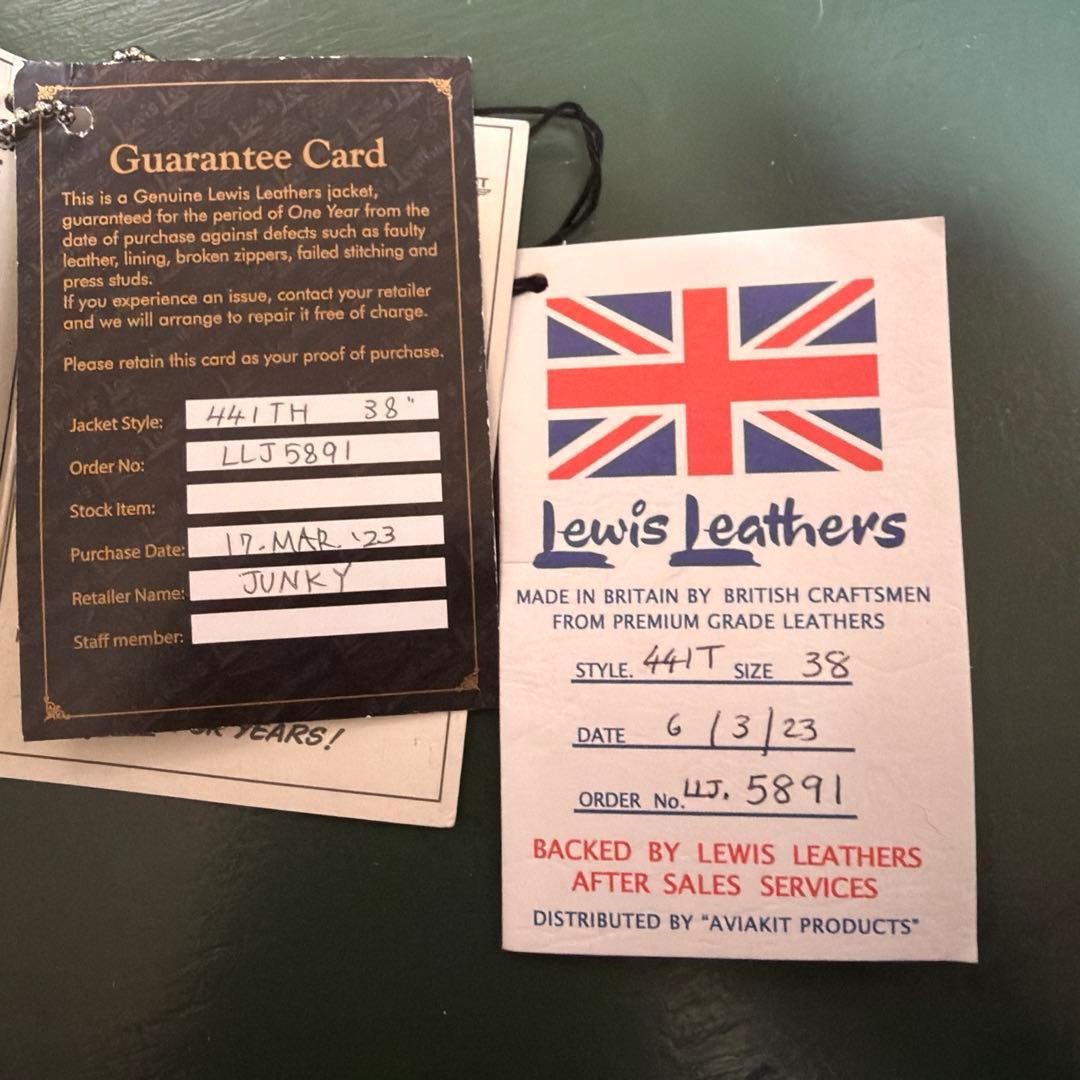 Guarantee Card
This is a Genuine Lewis Leathers jacket,
guaranteed for the period of One Year from the
date of purchase against defects such as faulty
leather, lining, broken zippers, failed stitching and
press studs.
If you experience an issue, contact your retailer
and we will arrange to repair it free of charge.
Please retain this card as your proof of purchase.
Jacket Style: 441TH 38"
Order No: LLJ5891
Stock Item:
Purchase Date: 17.MAR '23
Retailer Name: JUNKY
Staff member:
YEARS!
Lewis Leathers
MADE IN BRITAIN BY BRITISH CRAFTSMEN
FROM PREMIUM GRADE LEATHERS
STYLE. 441T SIZE 38
DATE 6/3/23
ORDER No. LLJ. 5891
BACKED BY LEWIS LEATHERS
AFTER SALES SERVICES
DISTRIBUTED BY "AVIAKIT PRODUCTS"